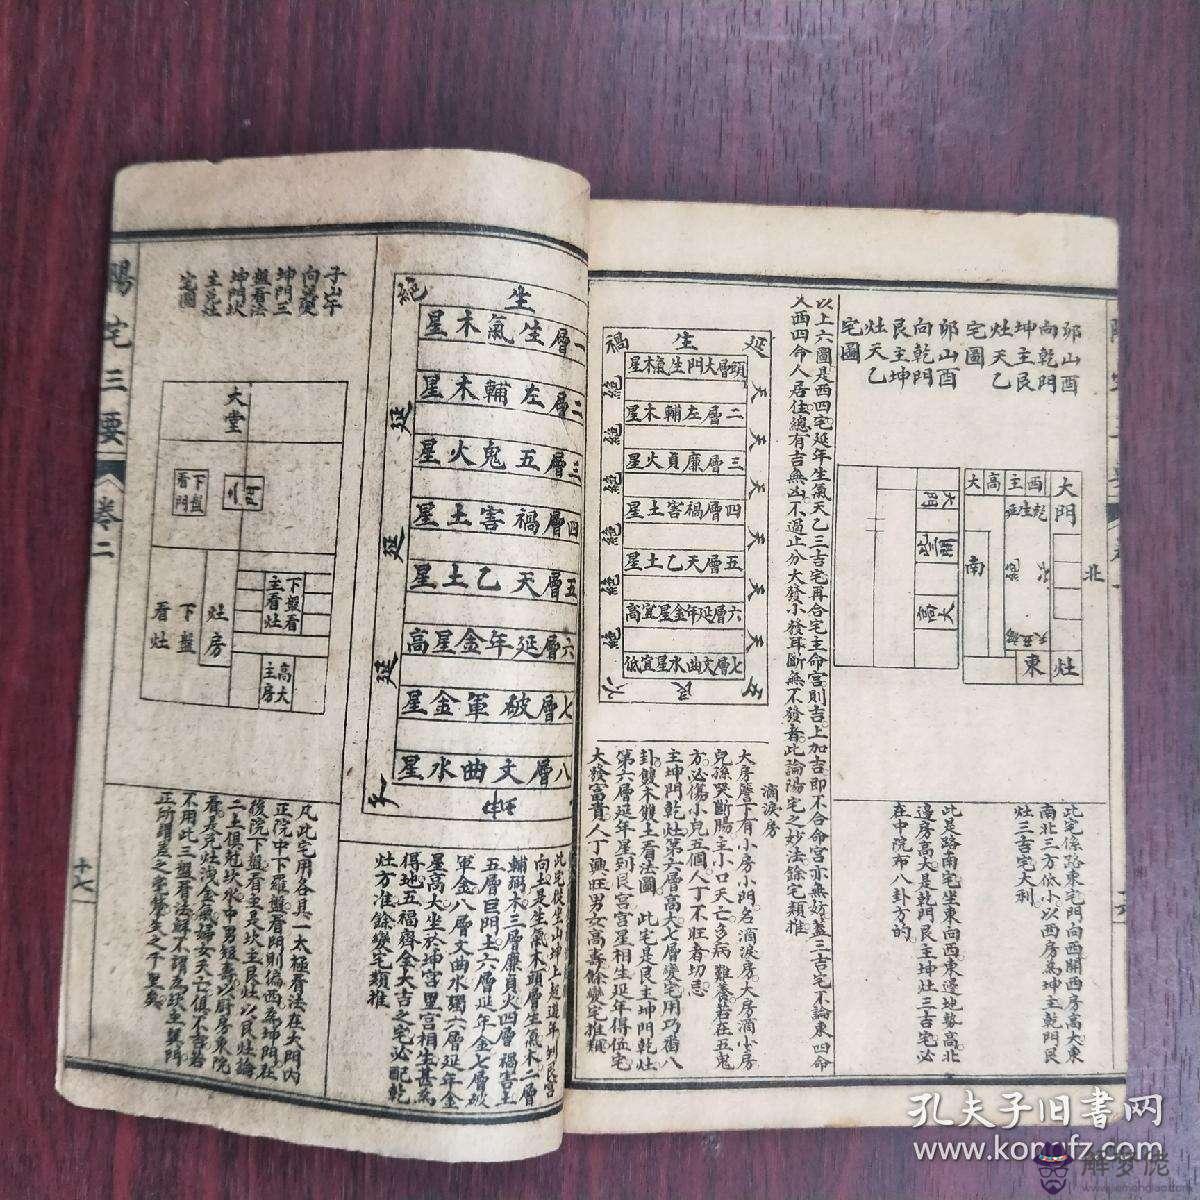 卯山酉
向乾門
坤主艮
灶天乙
宅圖
大門
北
灶
東
南
高大
卯山酉
向乾門
艮主坤
灶天乙
宅圖
大門
此宅係路東宅門向西開西房高大東
南北三方低小以西房為坤主乾門艮
灶三吉宅大利
此是路南宅坐東向西東邊地勢高北
邊房高大是乾門艮主坤灶三吉宅必
在中院布八卦方的
以上六圖是西四宅延年生氣天乙三吉宅再合宅主命宮則吉上加吉即不合命宮亦無妨蓋三吉宅不論東四命
人西四命人居住總有吉無凶不過止分大發小發耳斷無不發者此論陽宅之妙法餘宅類推
延
生
禍
頭層大門生氣木星
二層左輔木星
三層廉貞火星
四層禍害土星
五層天乙土星
六層延年金星宜高
七層文曲水星宜低
天
天
天
天
天
天
絕
絕
絕
絕
絕
絕
五
艮
六
滴淚房
大房簷下有小房小門名滴淚房大房滴小房
兒孫哭斷腸主小口夭亡多病難養若在五鬼
方必傷小兒五個人丁不旺者切忌
主坤門乾灶第六層高大七層變宅用巧番八
卦雙木雙土看法圖 此宅是艮主坤門乾灶
第六層延年星到艮宮宮星相生延年得位宅
大發富貴人丁興旺男女高壽餘變宅推類
生
絕
一層生氣木星
二層左輔木星
三層五鬼火星
四層禍害土星
五層天乙土星
六層延年金星高
七層破軍金星
八層文曲水星
延
延
延
此宅從坐山坤上起遊年到艮宮
向上是生氣木頭層生氣木二層
輔弼木三層廉貞火四層禍害土
五層巨門土六層延年金七層破
軍金八層文曲水獨六層延年金
星高大坐於坤宮星宮相生甚為
得地五福齊全大吉之宅必配乾
灶方准餘變宅類推
子山午
向巽
坤門三
盤看法
坤門坎
主艮灶
宅圖
大堂
下盤
看門
下盤看
主看灶
高大
主房
灶房
下盤
看灶
凡此宅用各具一太極看法在大門內
正院中下羅盤看門則偏西為坤門在
後院下盤看主是坎主艮灶以艮灶論
二土俱剋坎水中男短壽以廚房東院
看是兌灶洩金氣婦女夭亡俱不吉若
不用此三盤看法鮮不謂為坎主巽門
正所謂差之毫釐失之千里矣
陽宅三要
卷二
十七
孔夫子旧書网
www.kongfz.com
解梦佬